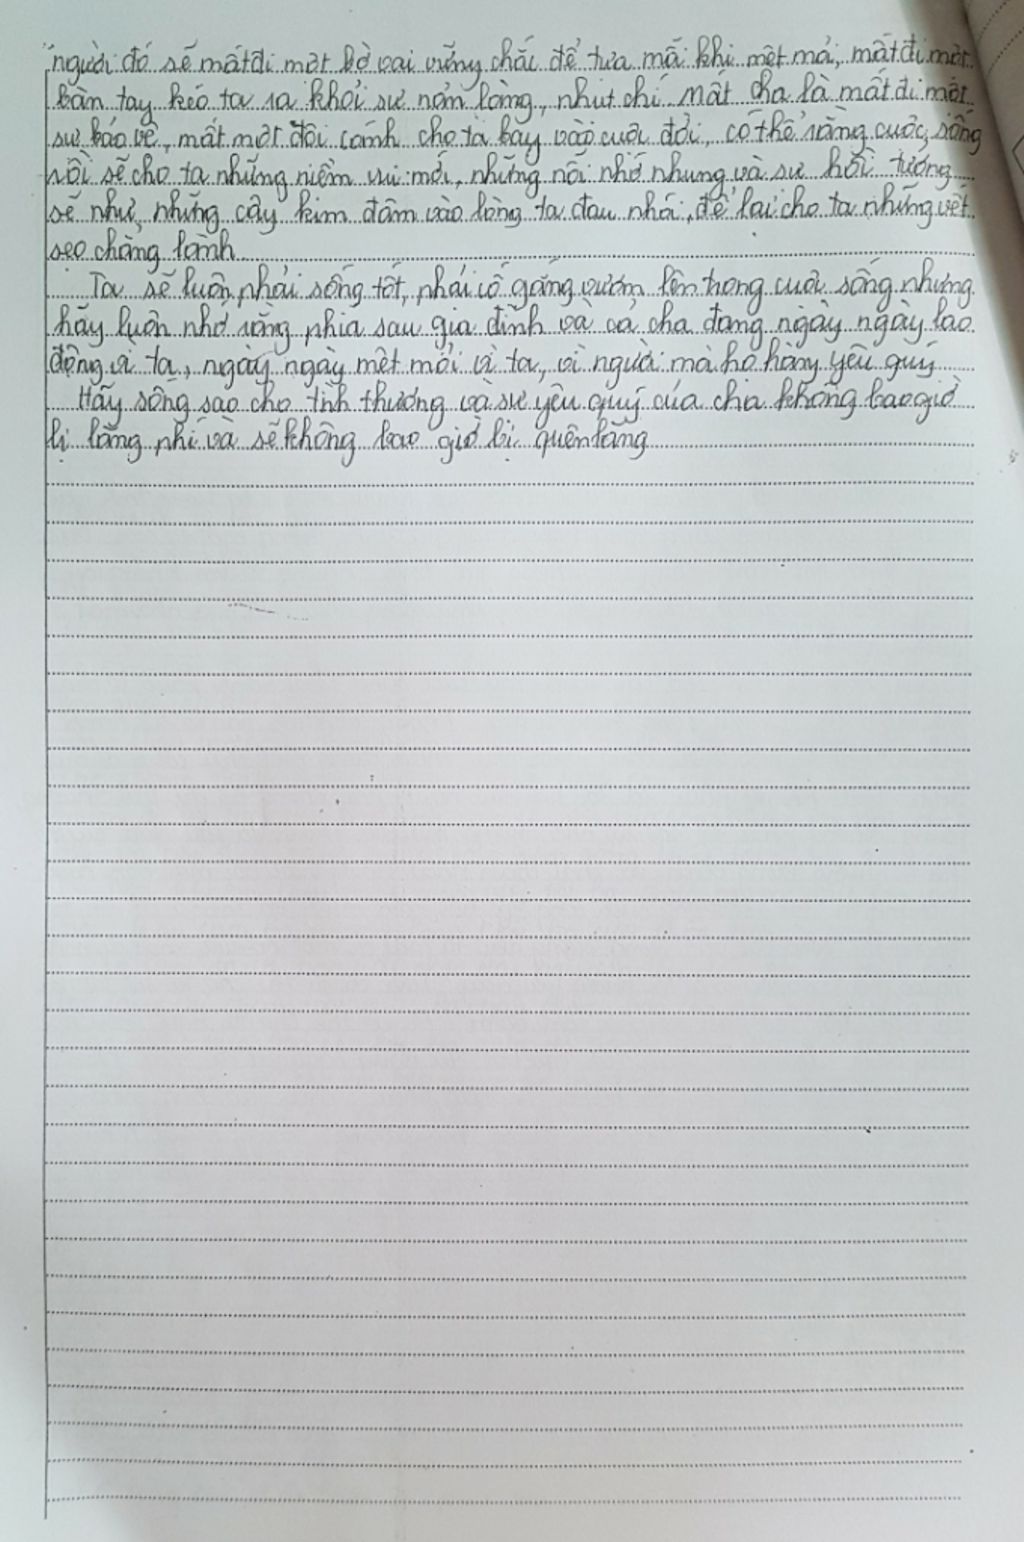 người đó sẽ mất đi một bờ vai vững chắc để tựa mỗi khi mệt mỏi, mất đi một
bàn tay kéo ta ra khỏi sự nản lòng, nhụt chí. Mất cha là mất đi một
sự bảo vệ, mất một đôi cánh cho ta bay vào cuộc đời, có thể rằng cuộc sống
rồi sẽ cho ta những niềm vui mới, những nỗi nhớ nhung và sự hồi tưởng
sẽ như những cây kim đâm vào lòng ta đau nhói, để lại cho ta những vết
sẹo chẳng lành
Ta sẽ luôn phải sống tốt, phải cố gắng vươn lên trong cuộc sống nhưng
hãy luôn nhớ rằng phía sau gia đình và có cha đang ngày ngày lao
động vì ta, ngày ngày mệt mỏi vì ta, vì người mà họ hằng yêu quý
Hãy sống sao cho tình thương và sự yêu quý của cha không bao giờ
bị lãng phí và sẽ không bao giờ bị quên lãng